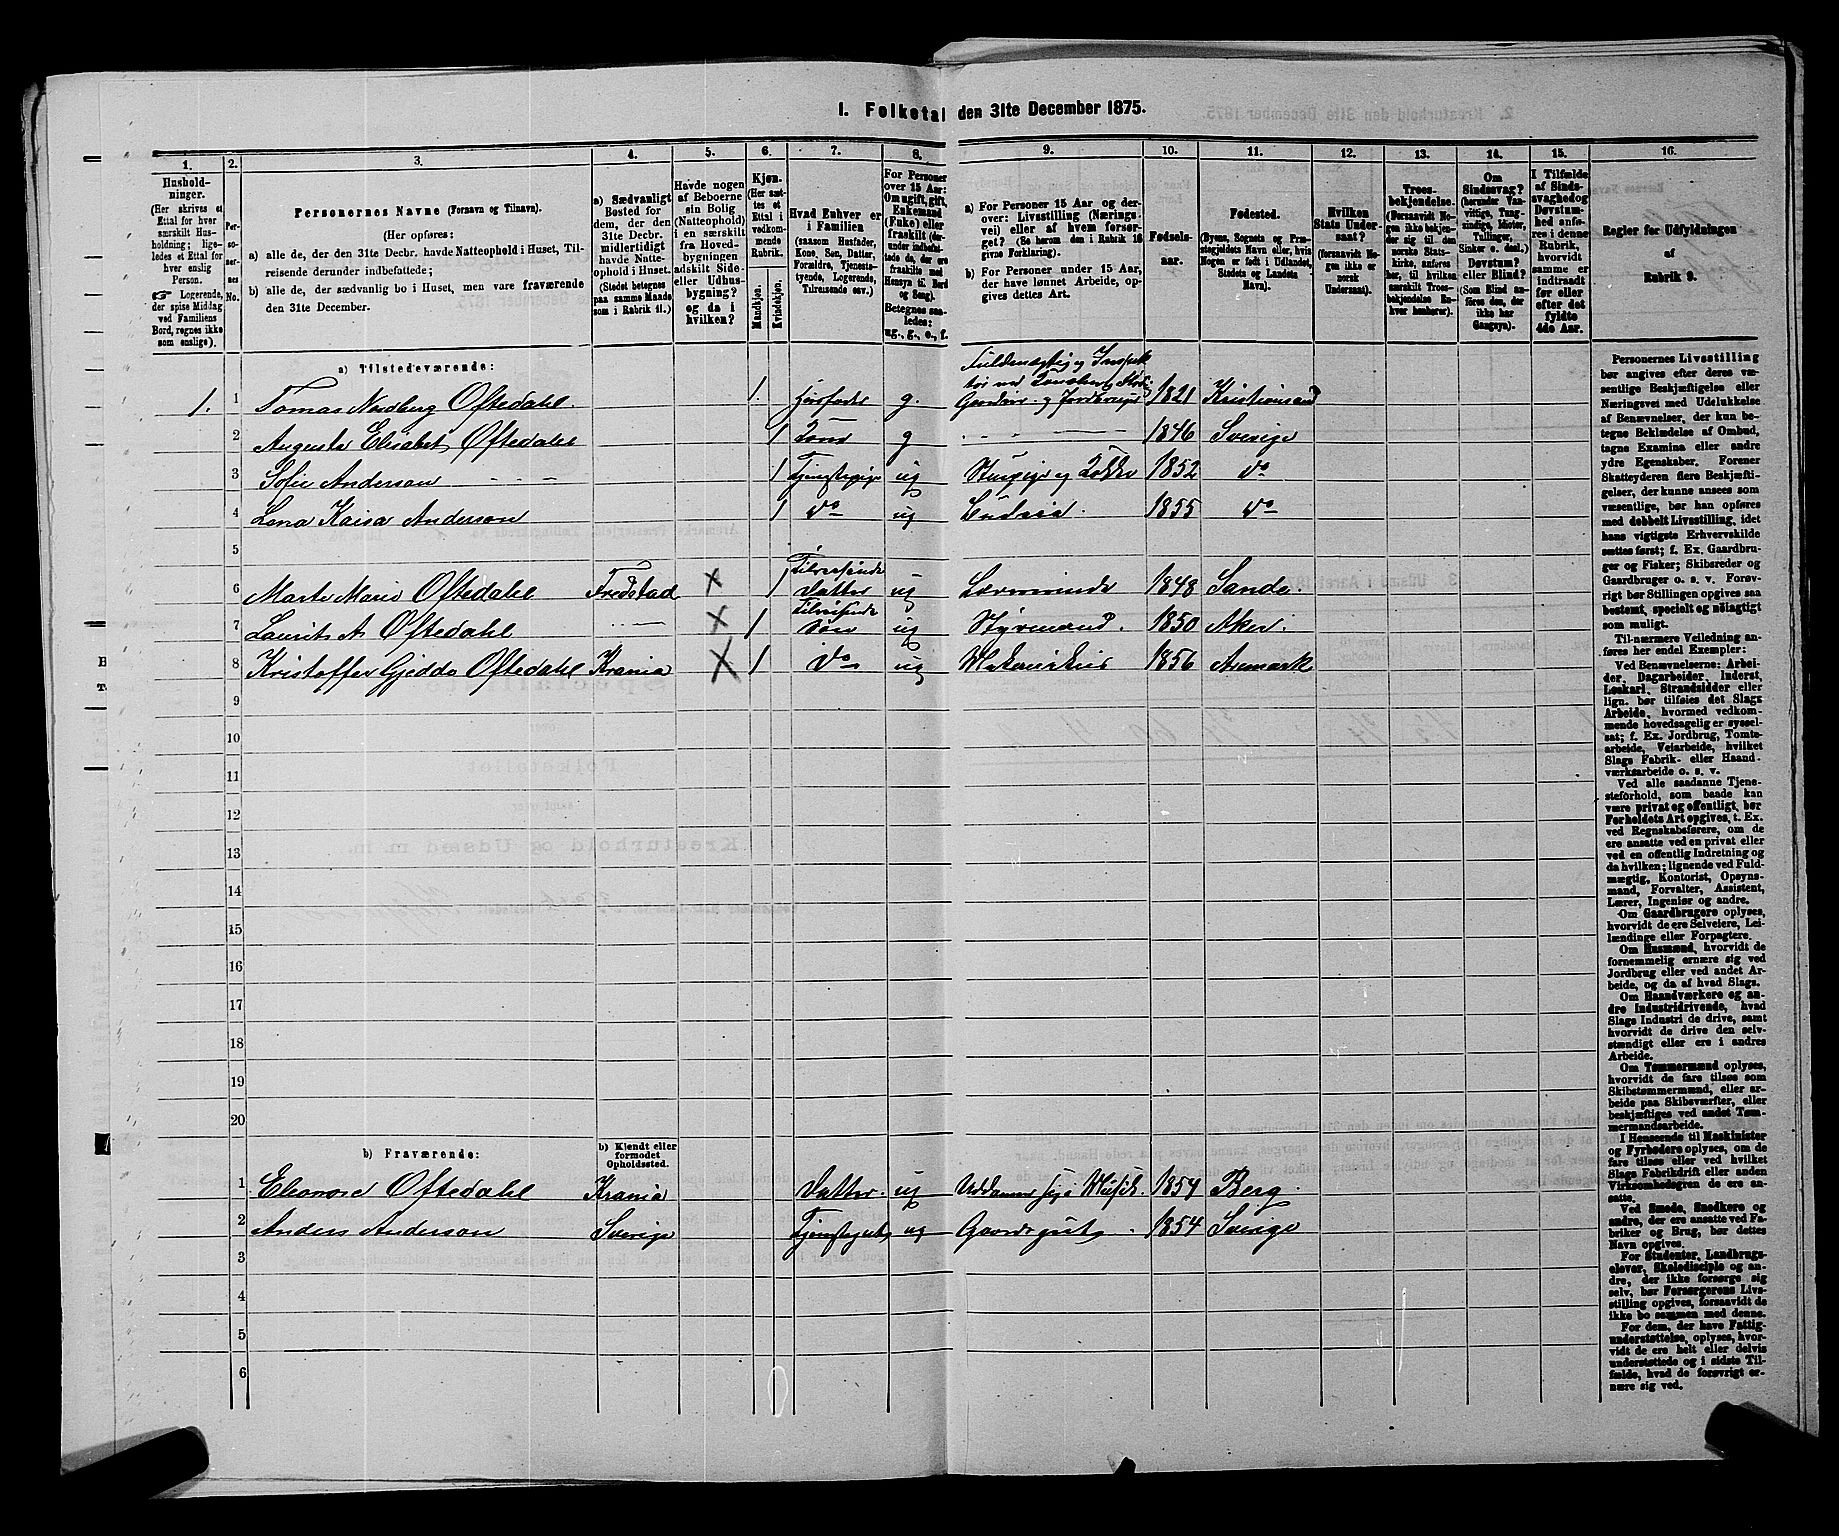 1. Folketal den 31te December 1875.
1. 2. 3. 4. 5. 6. 7. 8. 9. 10. 11. 12. 13. 14. 15. 16.
Hushold-
ninger.
(Her skrives et
Ettal for hver
særskilt Hus-
holdning; lige-
ledes et Ettal for
hver enslig
Person.
☞ Logerende,
der spise Middag
ved Familiens
Bord, regnes ikke
som enslige).
Per-
so-
ner-
nes
No.
Personernes Navne (Fornavn og Tilnavn).
(Her opføres:
a) alle de, der den 31te Decbr. havde Natteophold i Huset, Til-
reisende derunder indbefattede;
b) alle de, der sædvanlig bo i Huset, men vare fraværende
den 31te December.
a) Sædvanligt
Bosted for
dem, der den
31te Decbr.
midlertidigt
havde Natte-
ophold i Huset.
(Stedet betegnes
paa samme Maade
som i Rubrik 11.)
Havde nogen
af Beboerne
sin Bolig
(Natteophold)
i en særskilt
fra Hoved-
bygningen
adskilt Side-
eller Udhus-
bygning?
og da i
hvilken?
Kjøn.
(Her sæt-
tes et
Ettal i
vedkom-
mende
Rubrik.
Mandkjøn.
Kvindekjøn.
Hvad Enhver er
i Familien
(saasom Husfader,
Kone, Søn, Datter,
Forældre, Tjeneste-
tyende, Logerende,
Tilreisende osv.)
For Personer
over 15 Aar:
Om ugift, gift,
Enkemand
(Enke) eller
fraskilt
Betegnes saa-
ledes:
ug., g., e., f.
a) For Personer 15 Aar og der-
over: Livsstilling (Nærings-
vei) eller af hvem forsør-
get? (Se herom den i Rubrik 16
givne Forklaring).
b) For Personer under 15 Aar,
der have lønnet Arbeide, op-
gives dettes Art.
Fødsels-
aar.
Fødested.
(Byens, Sognets og Præ-
stegjeldets Navn eller, hvis
Nogen er født i Udlandet,
Stedets og Landets
Navn).
Hvilken
Stats Under-
saat?
(forsaavidt No-
gen ikke er
norsk
Undersaat).
Troes-
bekjendelse.
(Forsaavidt No-
gen ikke bekjen-
der sig til den
norske Stats-
kirke, anføres
her, til hvilken
særskilt Troes-
bekjendelse En-
hver henhører).
Om
Sindssvag?
(herunder Van-
vittige, Tung-
sindige, Idioter,
Tullinger,
Sinker o. desl.)
Døvstum?
eller Blind?
(Som Blind an-
føres den, der
ikke har
Gangsyn).
I Tilfælde
af Sinds-
svaghed og
Døvstum-
hed anfø-
res i denne
Rubrik,
hvorvidt
samme er
indtraadt
før eller
efter det
fyldte
4de Aar.
Regler for Udfyldningen
af
Rubrik 9.
a) Tilstedeværende:
1. 1 Tomas Nordberg Oftedahl. 1. Husfader g. Fuldmægtig og
Gaardbr. og Jordbruger 1821 Kristiansand
2 Augusta Elisabet Oftedahl 1 Kone g 1846 Sverige
3 Sofie Anderson 1 Tjenestepige ug Stuepige og Kokke 1852 do
4 Lena Kaisa Anderson 1 do ug Budeie. 1855 do
5
6 Marte Marie Oftedahl Fredstad X 1 Tilreisende
Datter ug Lærerinde 1848 Sande.
7 Laurits A Oftedahl X 1 Tilreisende
Søn ug Styrmand. 1850 Aker.
8 Kristoffer Gjedde Oftedahl Krania X 1 do ug 1856 Aremark
9
10
11
12
13
14
15
16
17
18
19
20
b) Fraværende:
b) Kjendt eller
formodet
Opholdssted.
1 Eleonore Oftedahl Krania Datter. ug Uddanner sig i Musik. 1854 Berg.
2 Anders Anderson Sverige Tjenestegut ug Gaardsgut 1854 Sverige
3
4
5
6
Personernes Livsstilling
bør angives efter deres væ-
sentlige Beskjæftigelse eller
Næringsvei med Udelukkelse
af Benævnelser, der kun be-
tegne Beklædelse af Ombud,
tagne Examina eller andre
ydre Egenskaber. Forener
Skatteyderen flere Beskjæfti-
gelser, der kunne ansees som
væsentlige, bør han opføres
med dobbelt Livsstilling, idet
hans vigtigste Erhvervskilde
sættes først; f. Ex. Gaardbru-
ger og Fisker; Skibsreder og
Gaardbruger o. s. v. Forøv-
rigt bør Stillingen opgives saa
bestemt, specielt og nøiagtigt
som muligt.
Til nærmere Veiledning an-
føres her endel Exempler:
Ved Benævnelserne: Arbei-
der, Dagarbeider, Inderst,
Løskarl, Strandsidder eller
lign. bør tilføies det Slags
Arbeide, hvormed vedkom-
mende hovedsagelig er syssel-
sat; f. Ex. Jordbrug, Tomte-
arbeide, Veiarbeide, hvilket
Slags Fabrik- eller Haand-
værksarbeide o. s. v.
Ved alle saadanne Tjene-
steforhold, som baade kan
være privat og offentligt, bør
Forholdets Art opgives, t. Ex.
ved Regnskabsførere, om de
ere ansatte ved en privat eller
ved en offentlig Indretning og
da hvilken; lignende ved Fuld-
mægtig, Kontorist, Opsyns-
mand, Forvalter, Assistent,
Lærer, Ingeniør og andre.
Om Gaardbrugere oplyses,
hvorvidt de ere Selveiere, Lei-
lændinge eller Forpagtere.
Om Husmænd, hvorvidt de
fornemmelig ernære sig ved
Jordbrug eller ved andet Ar-
beide, og da af hvad Slags.
Om Haandværkere og an-
dre Industridrivende, hvad
Slags Industri de drive, samt
hvorvidt de drive den selv-
stændigt eller ere i andres
Arbeide.
Om Tømmermænd oplyses,
hvorvidt de fare tilsøs som
Skibstømmermænd, eller ar-
beide paa Skibsværfter, eller
beskjæftiges ved andet Tøm-
mermandsarbeide.
I Henseende til Maskinister
og Fyrbødere oplyses, om de
fare tilsøs eller ved hvilket
Slags Fabrikdrift eller anden
Virksomhed de ere an-
satte.
Ved Smede, Snedkere og
andre, der ere ansatte ved Fa-
briker og Brug, bør dettes
Navn opgives.
For Studenter, Landbrugs-
elever, Skoledisciple og an-
dre, der ikke forsørge sig
selv, bør Forsørgerens Livs-
stilling opgives, forsaavidt de
ikke bo sammen med denne.
For dem, der have Fattig-
understøttelse, oplyses, hvor-
vidt de ere helt eller delvis
understøttede og i sidste Til-
fælde, hvad de forøvrigt er-
nære sig ved.